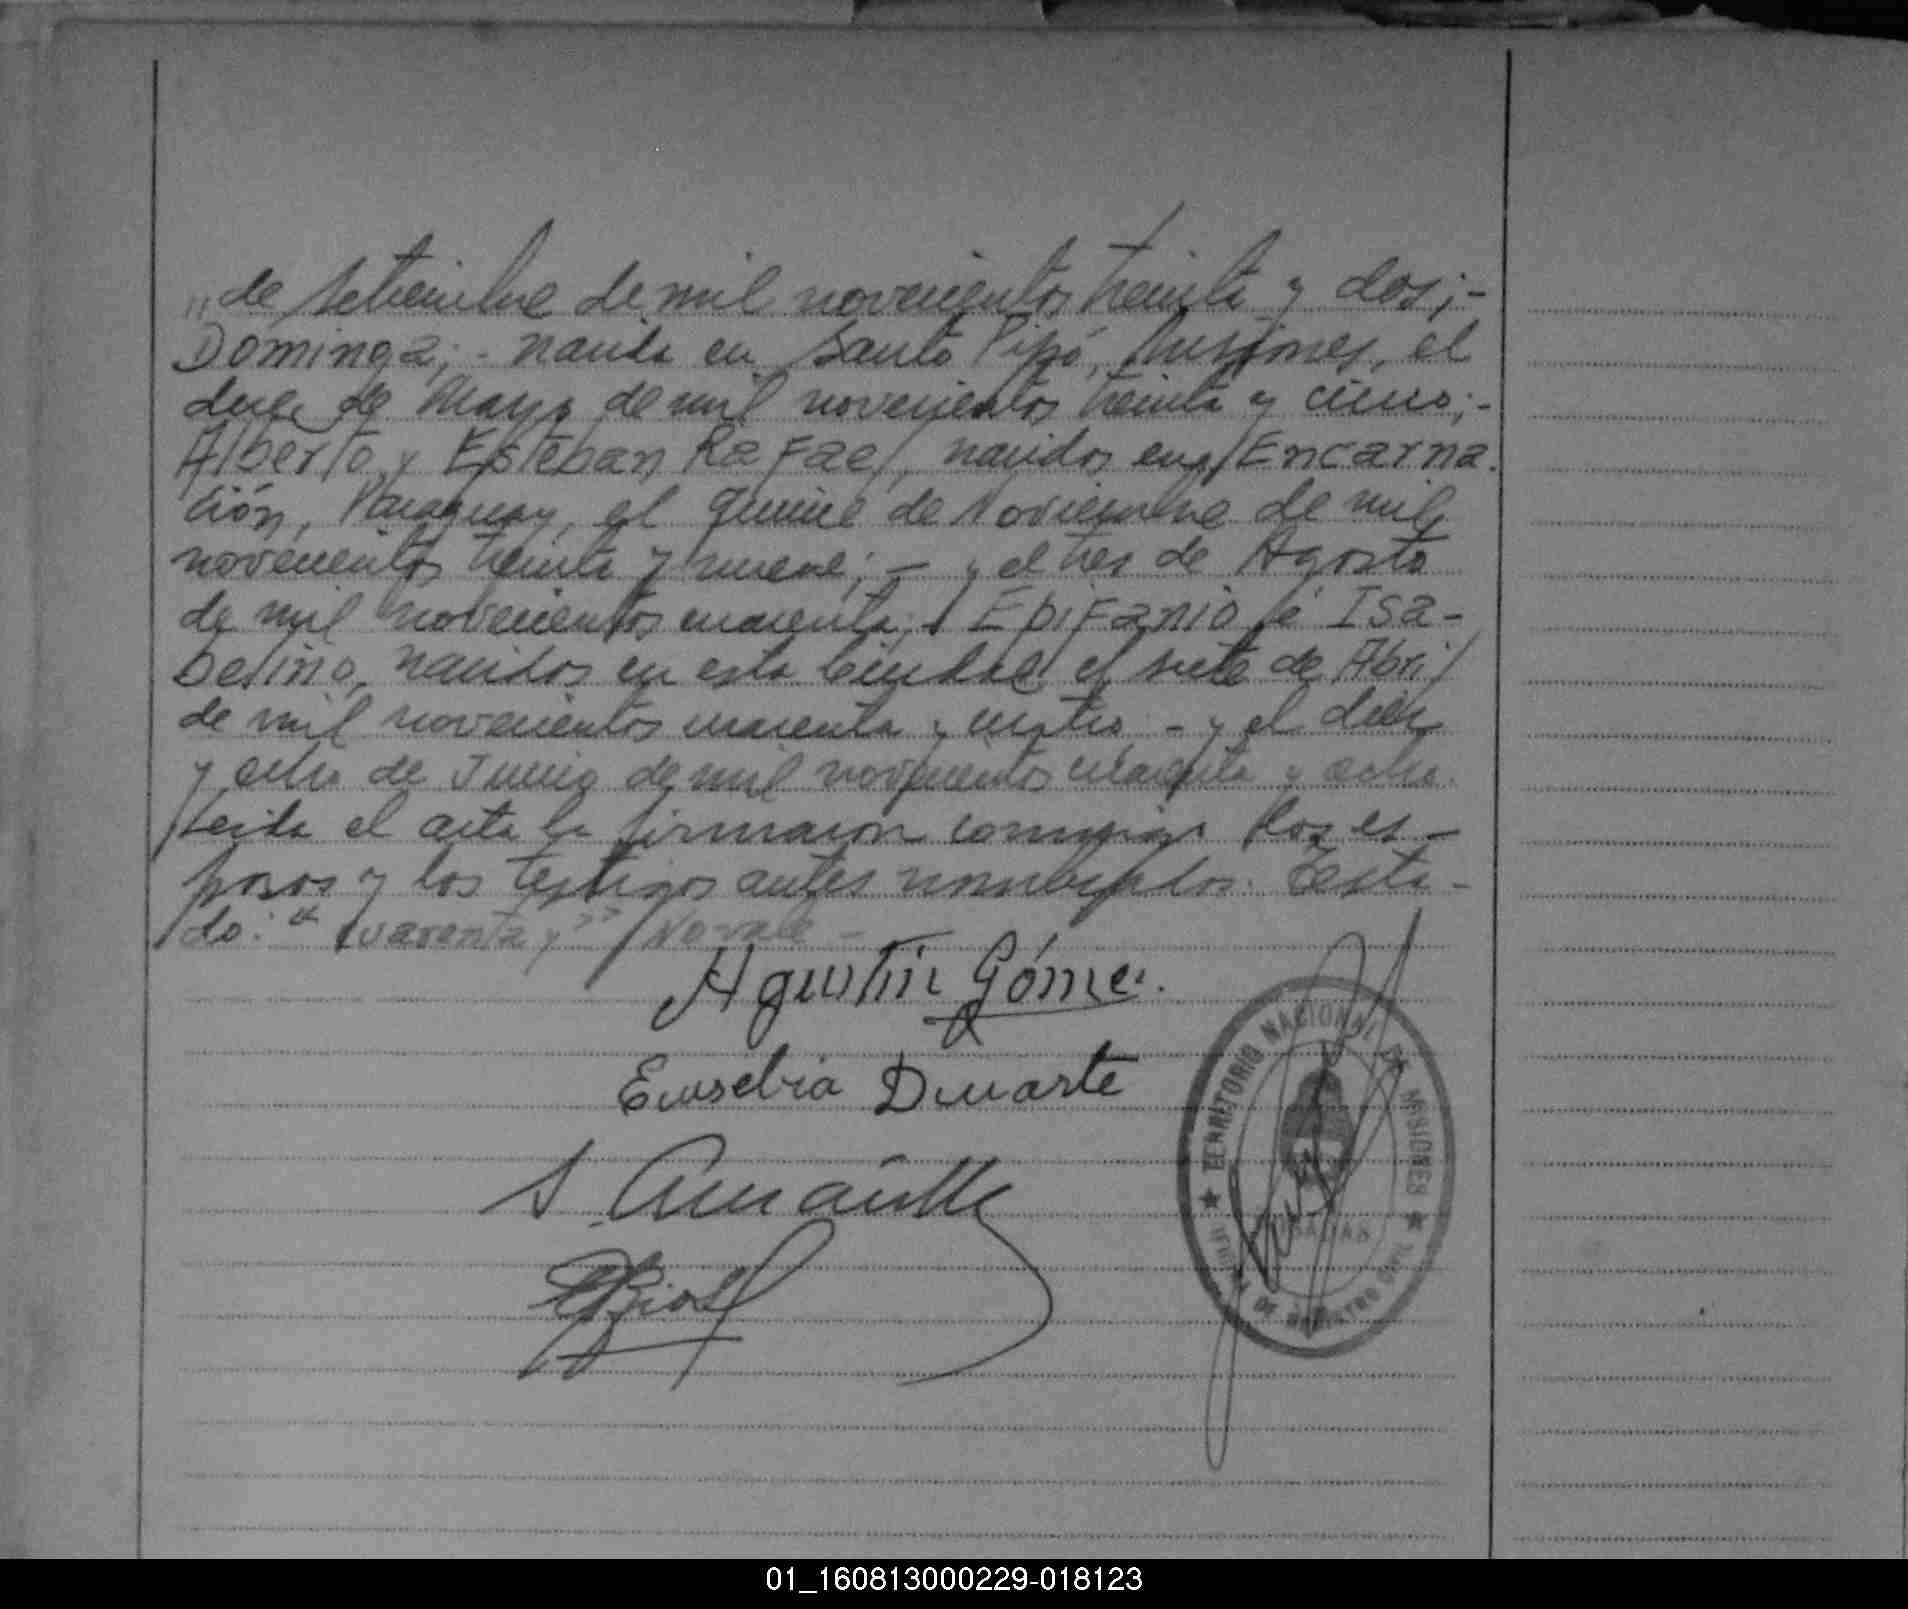 "de setiembre de mil novecientos treinta y dos;-
Dominga;- nacida en Santo Pipó, Misiones, el
doce de Mayo de mil novecientos treinta y cinco;-
Alberto y Esteban Rafael, nacidos en Encarna-
ción, Paraguay, el quince de Noviembre de mil
novecientos treinta y nueve;- y el tres de Agosto
de mil novecientos cuarenta; Epifanio é Isa-
belino, nacidos en esta Ciudad el siete de Abril
de mil novecientos cuarenta y cuatro - y el diez
y ocho de Junio de mil novecientos cuarenta y ocho.
Leida el acta la firmaron conmigo los es-
posos y los testigos antes nombrados. Testa-
do: "cuarenta y" No vale -
Agustín Gómez.
Eusebia Duarte
TERRITORIO NACIONAL DE MISIONES
POSADAS
OFICINA DE REGISTRO CIVIL
01_160813000229-018123